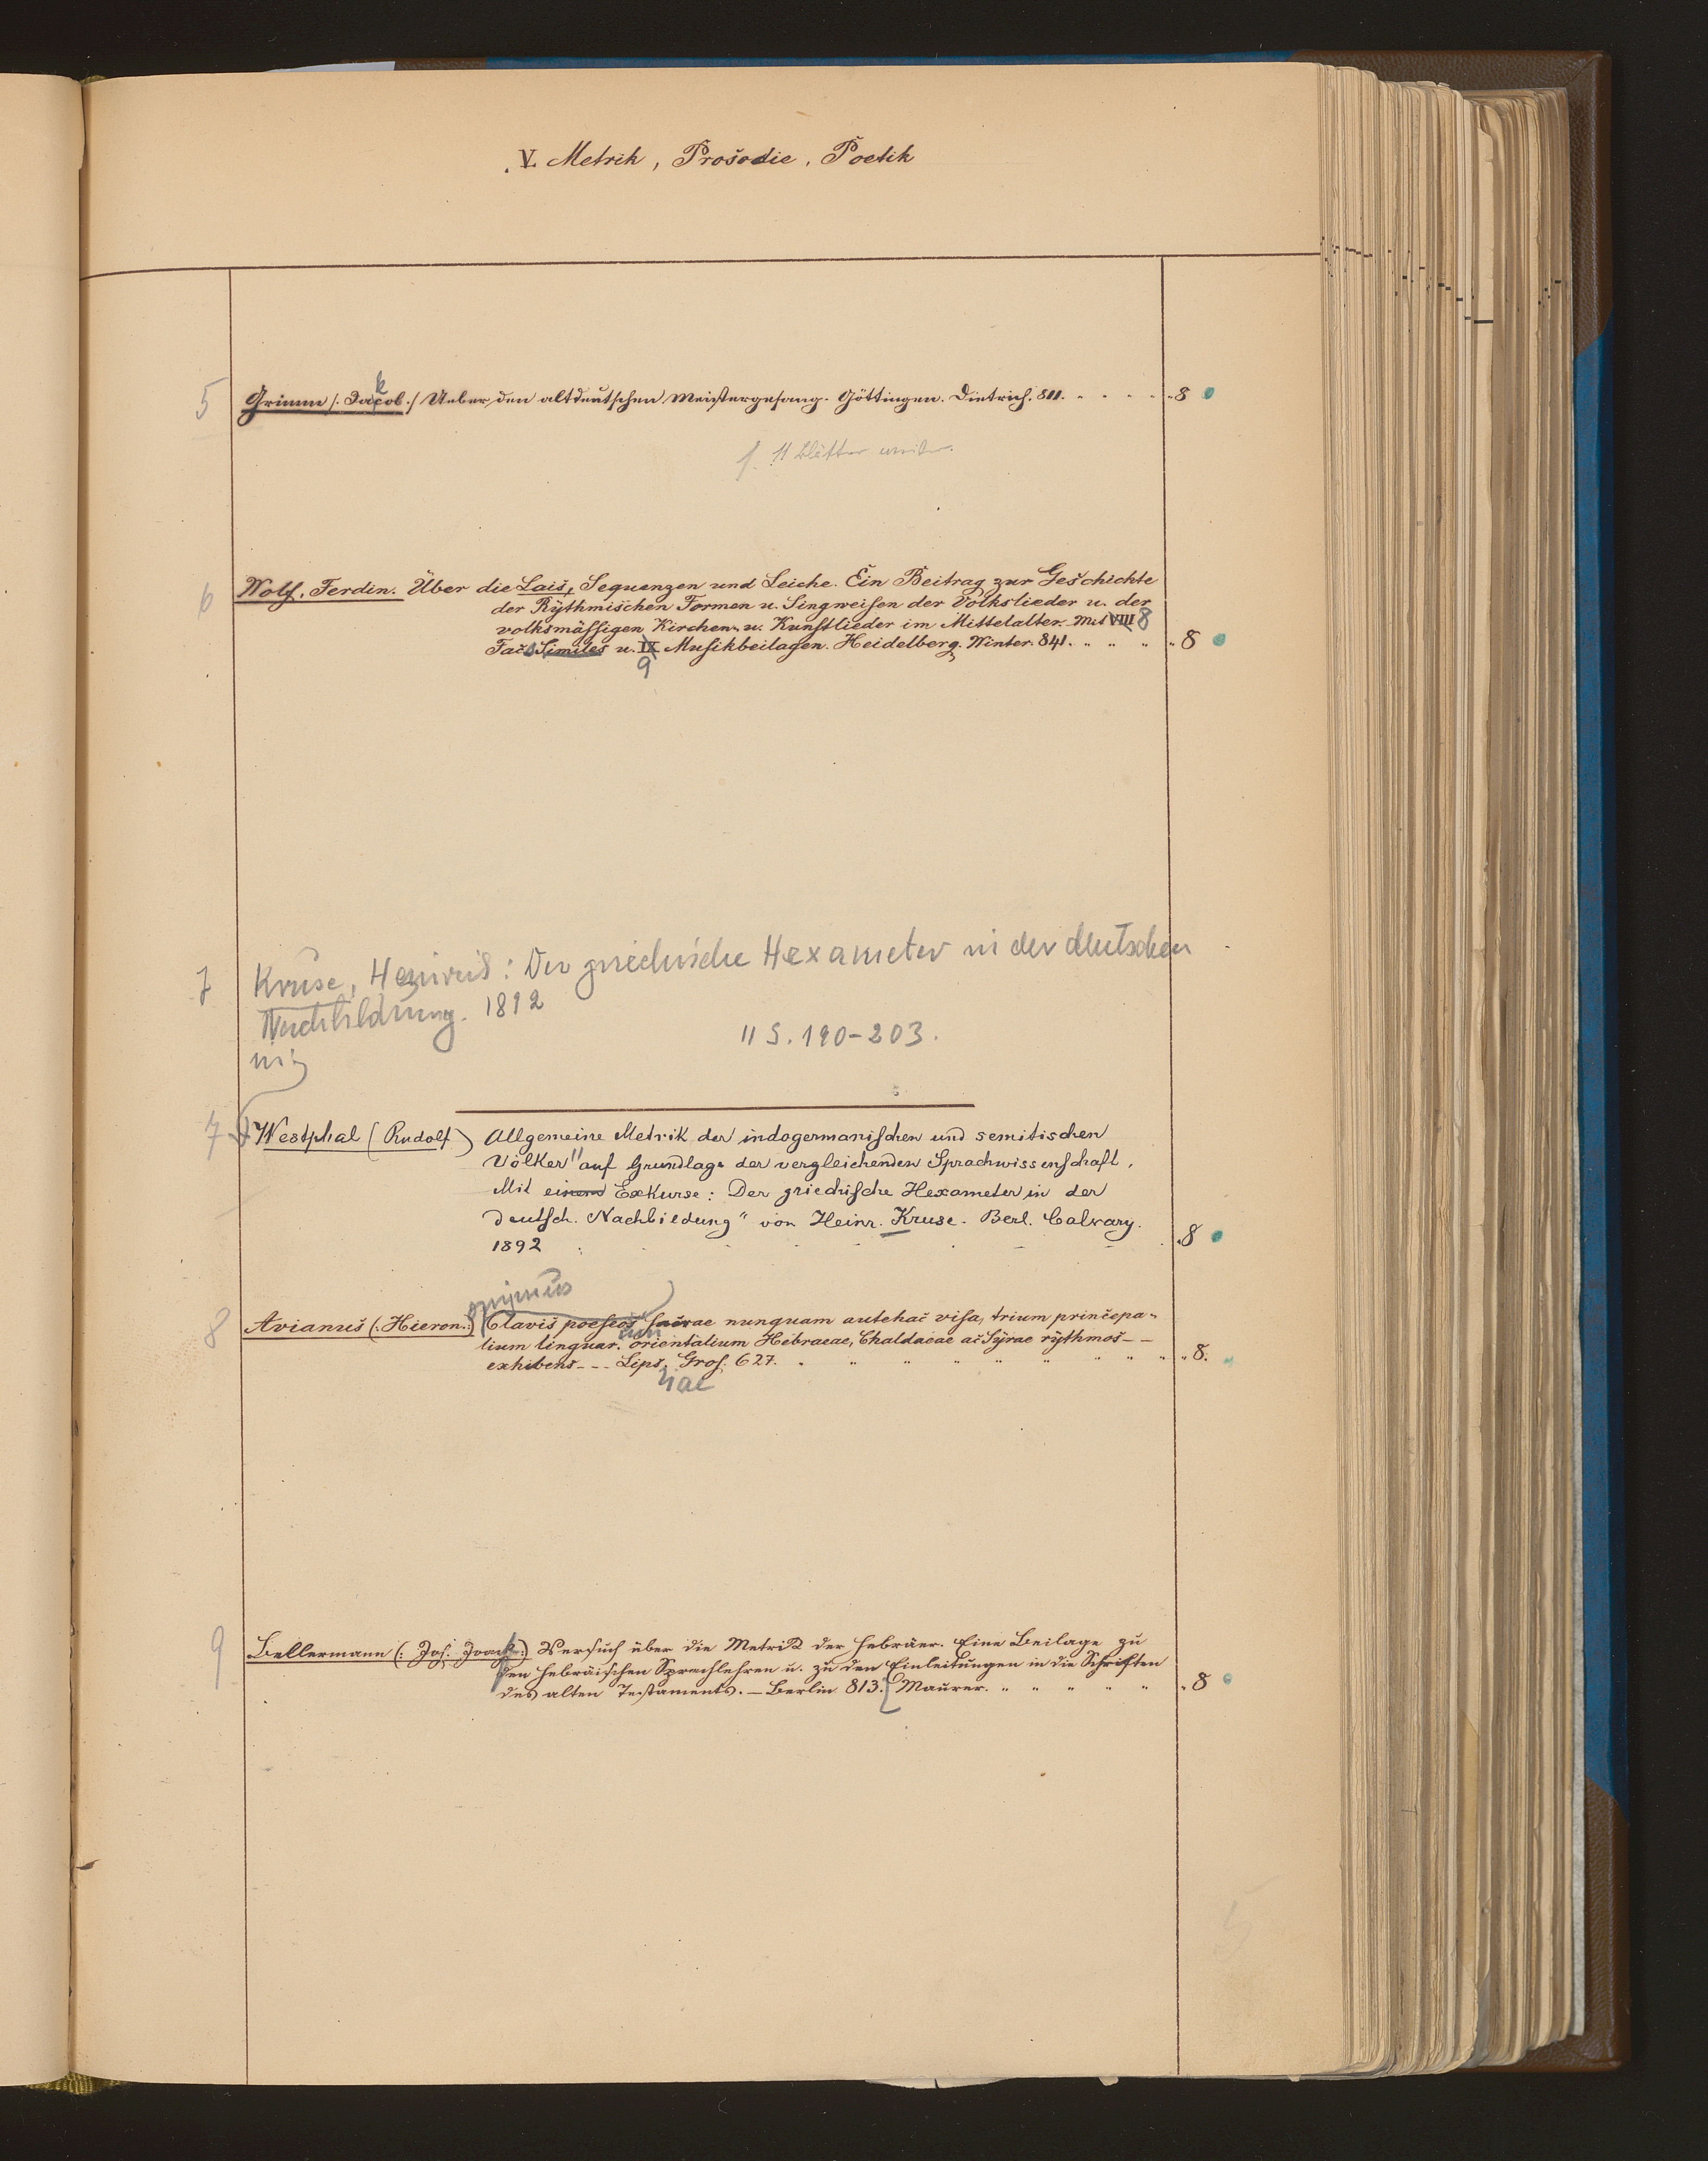 V. Metrik, Prosodie, Poetik
5 Grimm /: Jacob :/ Ueber den altdeutschen Meistergesang. Göttingen. Dietrich. 811. 8
k
11 Blätter weiter.
6 Wolf, Ferdin. Über die Lais, Sequenzen und Leiche. Ein Beitrag zur Geschichte
der Rythmischen Formen u. Singweisen der Volkslieder u. der
volksmässigen Kirchen- u. Kunstlieder im Mittelalter. Mit VIII 8
Fac Similes u. IX Musikbeilagen. Heidelberg. Winter. 841. 8
9
7 Kruse, Heinrich: Der griechische Hexameter in der deutschen
Nachbildung. 1892
in:
11 S. 190-203.
7 Westphal (Rudolf) Allgemeine Metrik der indogermanischen und semitischen
Völker auf Grundlage der vergleichenden Sprachwissenschaft.
Mit einem Exkurse: Der griechische Hexameter in der
deutsch. Nachbildung" von Heinr. Kruse. Berl. Calvary.
1892 8
onymus
8 Avianus (: Hieron. :) Clavis poeseos sacrae nunquam antehac visa, trium principa-
lium linguar. orientalium Hebraeae, Chaldaeae ac Syrae rythmos --
exhibens --- Lips. Gros. 627. 8.
9 Bellermann (: Joh. Joach :) Versuch über die Metrik der Hebräer. Eine Beilage zu
den hebräischen Sprachlehren u. zu den Einleitungen in die Schriften
des alten Testaments. – Berlin 813. [Maurer. 8